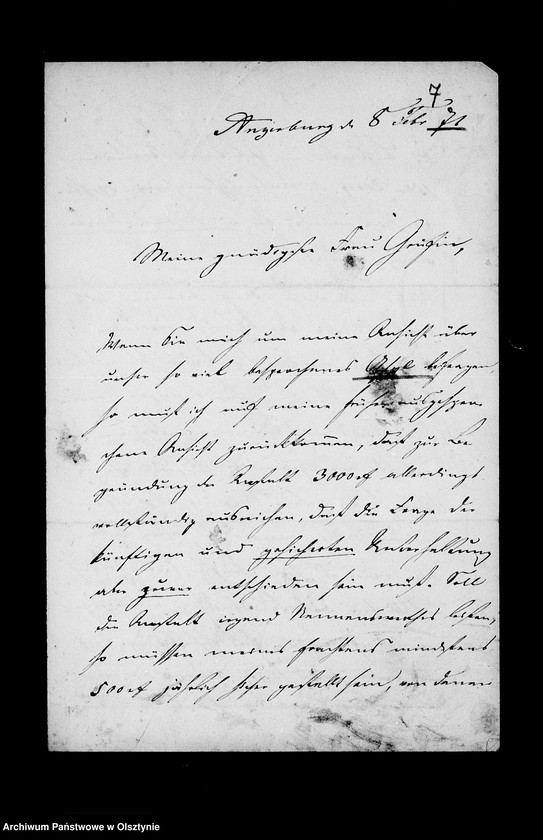 7
Angerburg d. 8 Febr 71
Meine gnädigste Frau Gräfin,
Wenn Sie mich um meine Ansicht über
unser so viel besprochenes Asyl befragen,
so muß ich auf meine früher ausgespro-
chene Ansicht zurückkommen, daß zur Be-
gründung der Anstalt 3000 rf allerdings
vollständig ausreichen, daß die Frage der
künftigen und gesicherten Unterhaltung
aber zuvor entschieden sein muß. Soll
die Anstalt irgend Nennenswerthes leisten,
so müssen meines Erachtens mindestens
500 rf jährlich sicher gestellt sein, von denen
Archiwum Państwowe w Olsztynie